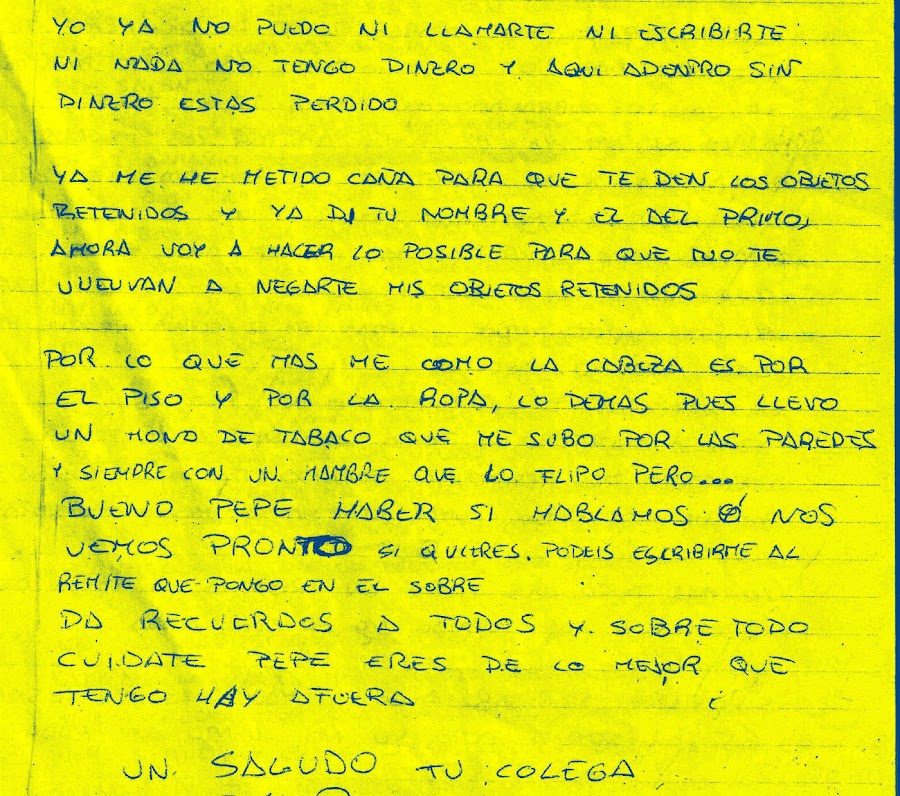 YO YA NO PUEDO NI LLAMARTE NI ESCRIBIRTE
NI NADA NO TENGO DINERO Y AQUI ADENTRO SIN
DINERO ESTAS PERDIDO
YA ME HE METIDO CAÑA PARA QUE TE DEN LOS OBJETOS
RETENIDOS Y YA DI TU NOMBRE Y EL DEL PRIMO,
AHORA VOY A HACER LO POSIBLE PARA QUE NO TE
VUELVAN A NEGARTE MIS OBJETOS RETENIDOS
POR LO QUE MAS ME COMO LA CABEZA ES POR
EL PISO Y POR LA ROPA, LO DEMAS PUES LLEVO
UN MONO DE TABACO QUE ME SUBO POR LAS PAREDES
Y SIEMPRE CON UN HAMBRE QUE LO FLIPO PERO...
BUENO PEPE HABER SI HABLAMOS Ó NOS
VEMOS PRONTO SI QUIERES. PODEIS ESCRIBIRME AL
REMITE QUE PONGO EN EL SOBRE
DA RECUERDOS A TODOS Y SOBRE TODO
CUIDATE PEPE ERES DE LO MEJOR QUE
TENGO HAY AFUERA
UN SALUDO TU COLEGA